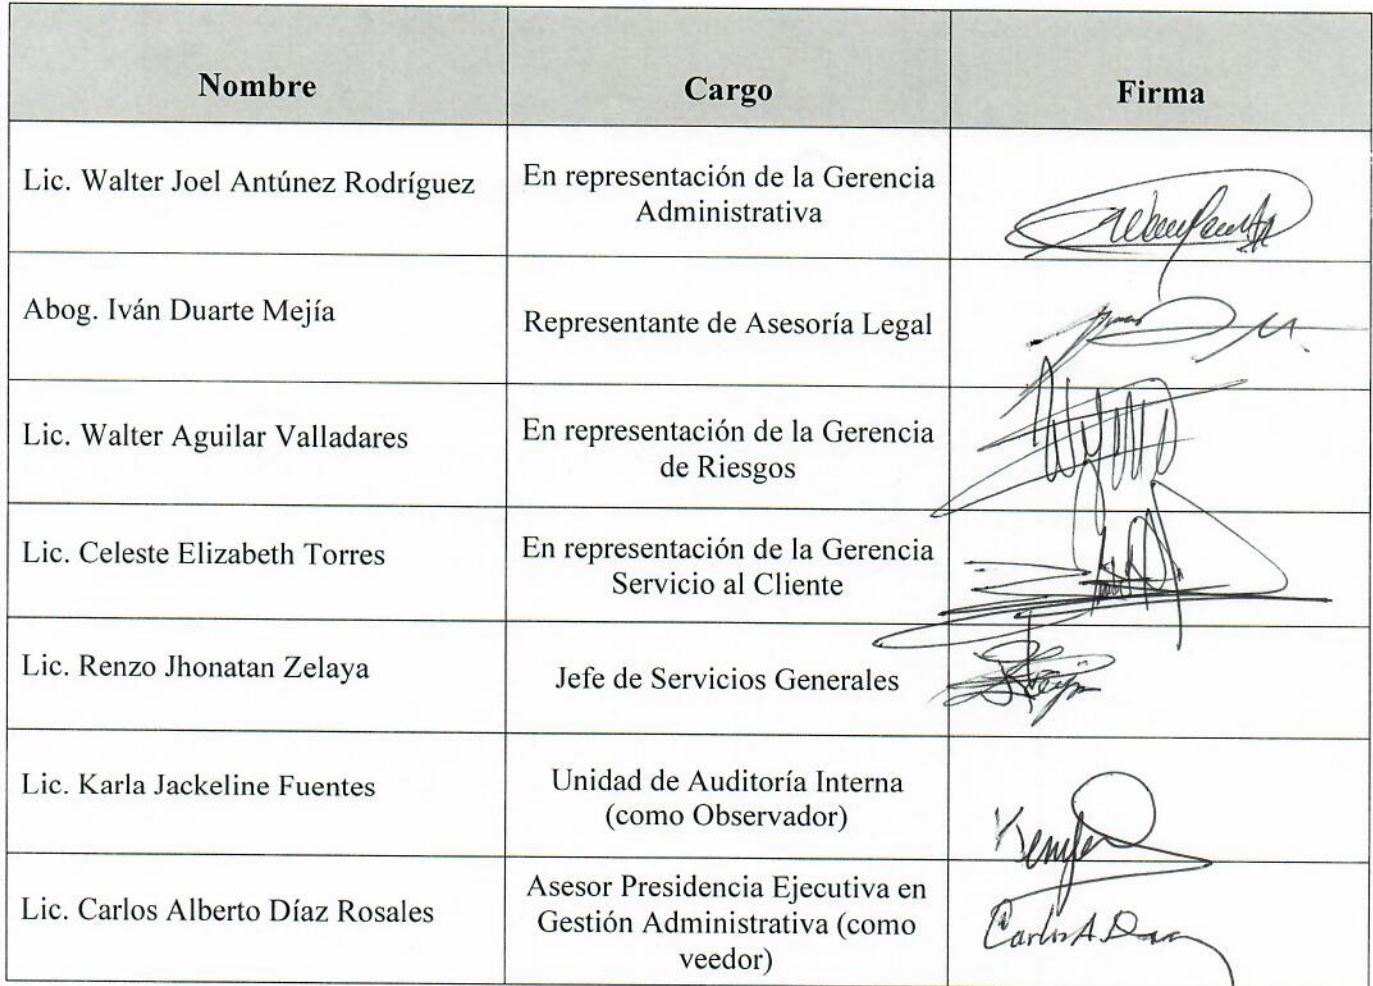 Nombre Cargo Firma
Lic. Walter Joel Antúnez Rodríguez
En representación de la Gerencia
Administrativa
Abog. Iván Duarte Mejía
Representante de Asesoría Legal
Lic. Walter Aguilar Valladares
En representación de la Gerencia
de Riesgos
Lic. Celeste Elizabeth Torres
En representación de la Gerencia
Servicio al Cliente
Lic. Renzo Jhonatan Zelaya
Jefe de Servicios Generales
Lic. Karla Jackeline Fuentes
Unidad de Auditoría Interna
(como Observador)
Lic. Carlos Alberto Díaz Rosales
Asesor Presidencia Ejecutiva en
Gestión Administrativa (como
veedor)
Carlos A.